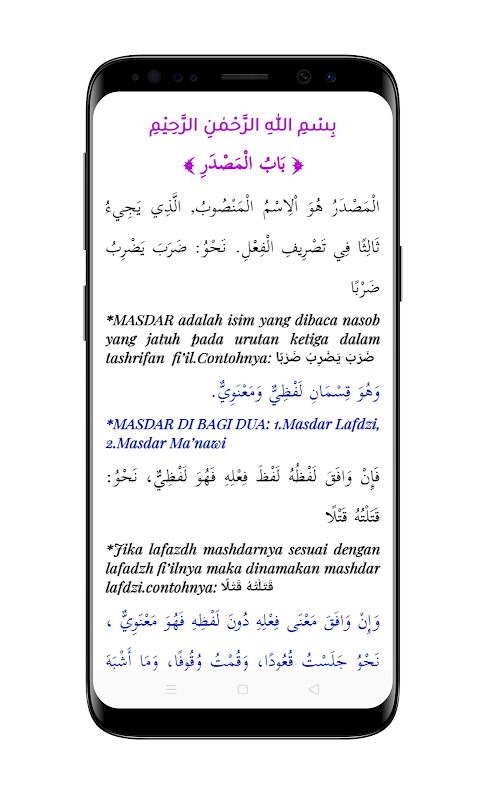 بِسْمِ اللهِ الرَّحْمٰنِ الرَّحِيْمِ
﴿ بَابُ الْمَصْدَرِ ﴾
الْمَصْدَرُ هُوَ اْلِاسْمُ الْمَنْصُوبُ, الَّذِي يَجِيءُ
ثَالِثًا فِي تَصْرِيفِ الْفِعْلِ. نَحْوُ: ضَرَبَ يَضْرِبُ
ضَرْبًا
*MASDAR adalah isim yang dibaca nasob
yang jatuh pada urutan ketiga dalam
tashrifan fi’il.Contohnya: ضَرَبَ يَضْرِبُ ضَرْبًا
وَهُوَ قِسْمَانِ لَفْظِيٌّ وَمَعْنَوِيٌّ.
*MASDAR DI BAGI DUA: 1.Masdar Lafdzi,
2.Masdar Ma’nawi
فَإِنْ وَافَقَ لَفْظُهُ لَفْظَ فِعْلِهِ فَهُوَ لَفْظِيٌّ، نَحْوُ:
قَتَلْتُهُ قَتْلًا
*Jika lafazdh mashdarnya sesuai dengan
lafadzh fi’ilnya maka dinamakan mashdar
lafdzi.contohnya: قَتَلْتُهُ قَتْلًا
وَإِنْ وَافَقَ مَعْنَى فِعْلِهِ دُونَ لَفْظِهِ فَهُوَ مَعْنَوِيٌّ ،
نَحْوُ جَلَسْتُ قُعُودًا، وَقُمْتُ وُقُوفًا، وَمَا أَشْبَهَ